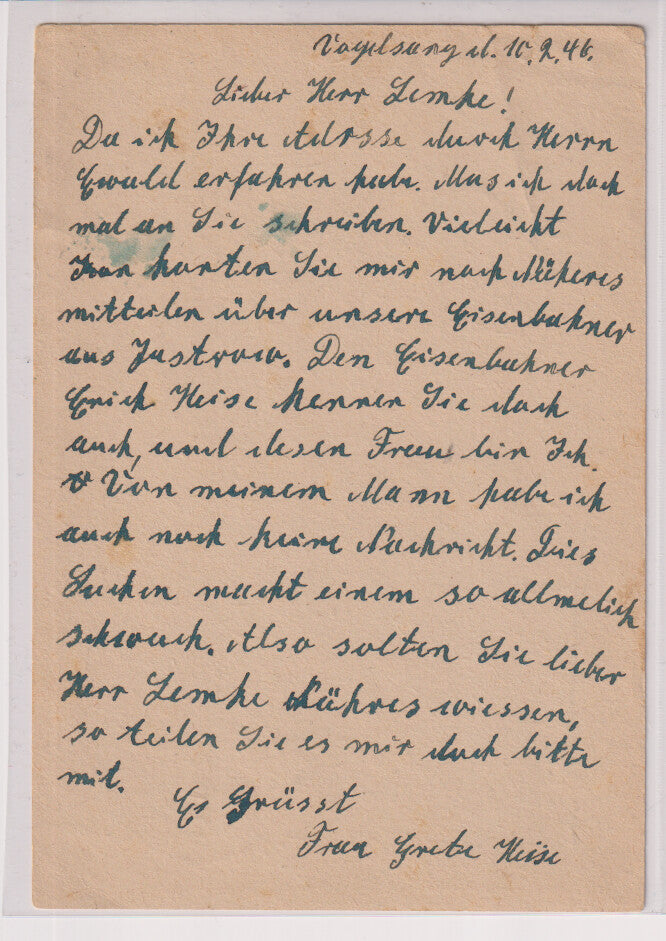 Vogelsang d. 10.2.46.
Lieber Herr Lemke!
Da ich Ihre Adrsse durch Herrn
Ewald erfahren habe. Mus ich doch
mal an Sie schreiben. Vieleicht
konten Sie mir noch Näheres
mitteilen über unsere Eisenbahner
aus Jastrow. Den Eisenbahner
Erich Heise kennen Sie doch
auch, und desen Frau bin Ich.
Von meinem Mann habe ich
auch noch keine Nachricht. Dies
Suchen macht einem so allmelich
schwach. Also solten Sie lieber
Herr Lemke Nähres wiessen,
so teilen Sie es mir doch bitte
mit.
Es Grüsst
Frau Grete Heise